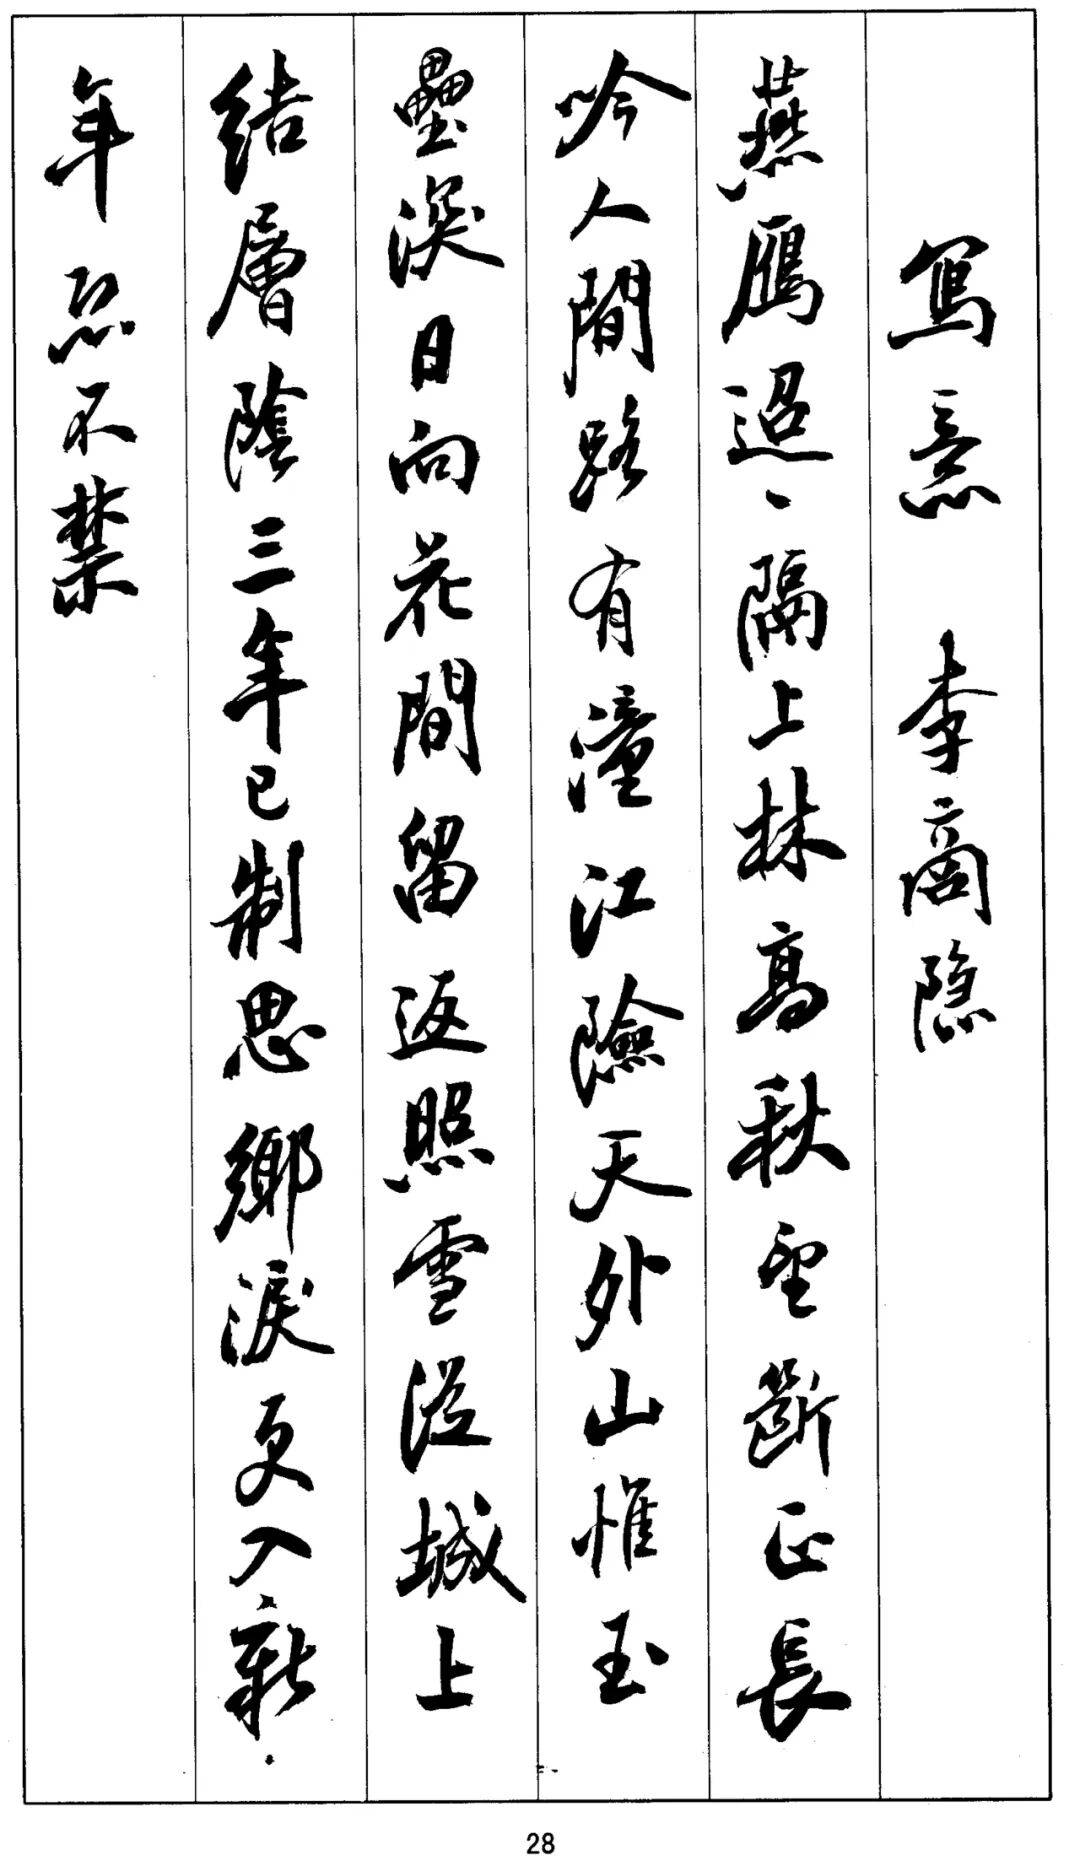 寫意 李商隐
燕鴈迢々隔上林高秋望斷正長
吟人間路有潼江險天外山惟玉
壘深日向花間留返照雪從城上
結層陰三年已制思鄉淚更入新
年恐不禁
28